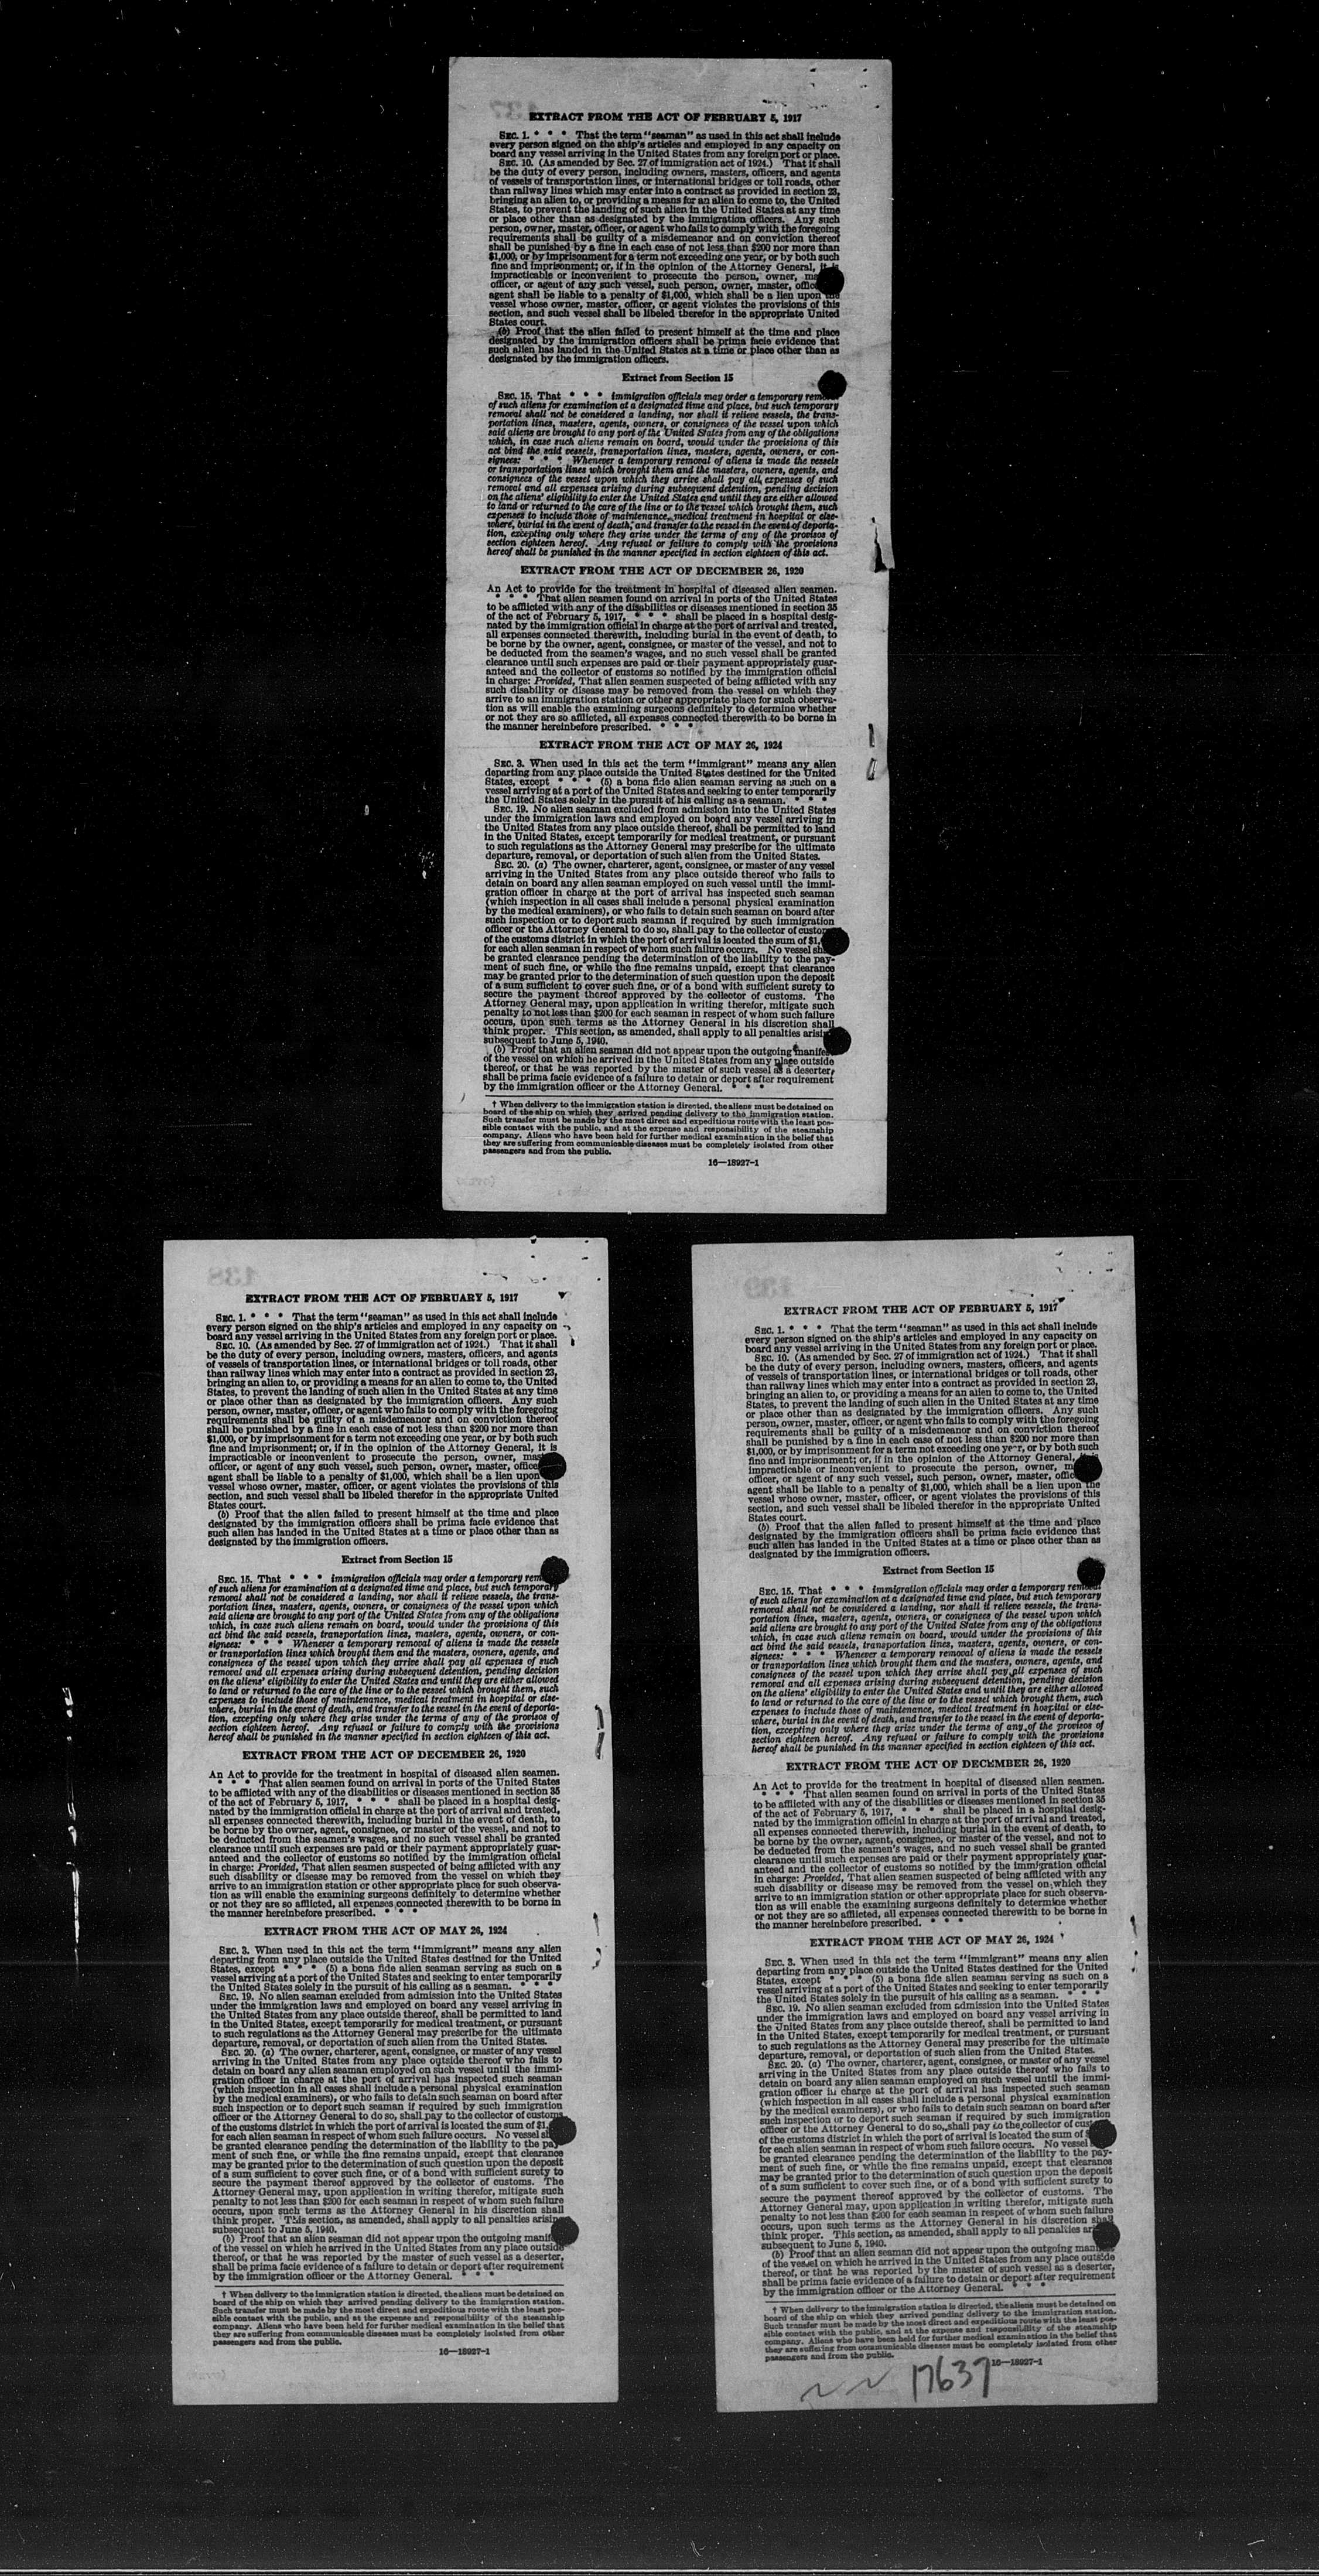 EXTRACT FROM THE ACT OF FEBRUARY 5, 1917
SEC. 1. * * * That the term "seaman" as used in this act shall include
every person signed on the ship's articles and employed in any capacity on
board any vessel arriving in the United States from any foreign port or place.
SEC. 10. (As amended by Sec. 27 of immigration act of 1924.) That it shall
be the duty of every person, including owners, masters, officers, and agents
of vessels of transportation lines, or international bridges or toll roads, other
than railway lines which may enter into a contract as provided in section 23,
bringing an alien to, or providing a means for an alien to come to, the United
States, to prevent the landing of such alien in the United States at any time
or place other than as designated by the immigration officers. Any such
person, owner, master, officer, or agent who fails to comply with the foregoing
requirements shall be guilty of a misdemeanor and on conviction thereof
shall be punished by a fine in each case of not less than $200 nor more than
$1,000, or by imprisonment for a term not exceeding one year, or by both such
fine and imprisonment; or, if in the opinion of the Attorney General, it is
impracticable or inconvenient to prosecute the person, owner,
officer, or agent of any such vessel, such person, owner, master,
agent shall be liable to a penalty of $1,000, which shall be a lien upon the
vessel whose owner, master, officer, or agent violates the provisions of this
section, and such vessel shall be libeled therefor in the appropriate United
States court.
(b) Proof that the alien failed to present himself at the time and place
designated by the immigration officers shall be prima facie evidence that
such alien has landed in the United States at a time or place other than as
designated by the immigration officers.
Extract from Section 15
SEC. 15. That * * * immigration officials may order a temporary
of such aliens for examination at a designated time and place, but such temporary
removal shall not be considered a landing, nor shall it relieve vessels, the trans-
portation lines, masters, agents, owners, or consignees of the vessel upon which
said aliens are brought to any port of the United States from any of the obligations
which, in case such aliens remain on board, would under the provisions of this
act bind the said vessels, transportation lines, masters, agents, owners, or con-
signees: * * * Whenever a temporary removal of aliens is made the vessels
or transportation lines which brought them and the masters, owners, agents, and
consignees of the vessel upon which they arrive shall pay all expenses of such
removal and all expenses arising during subsequent detention, pending decision
on the aliens' eligibility to enter the United States and until they are either allowed
to land or returned to the care of the line or to the vessel which brought them, such
expenses to include those of maintenance, medical treatment in hospital or else-
where, burial in the event of death, and transfer to the vessel in the event of deporta-
tion, excepting only where they arise under the terms of any of the provisos of
section eighteen hereof. Any refusal or failure to comply with the provisions
hereof shall be punished in the manner specified in section eighteen of this act.
EXTRACT FROM THE ACT OF DECEMBER 26, 1920
An Act to provide for the treatment in hospital of diseased alien seamen.
* * * That alien seamen found on arrival in ports of the United States
to be afflicted with any of the disabilities or diseases mentioned in section 35
of the act of February 5, 1917, * * * shall be placed in a hospital desig-
nated by the immigration official in charge at the port of arrival and treated,
all expenses connected therewith, including burial in the event of death, to
be borne by the owner, agent, consignee, or master of the vessel, and not to
be deducted from the seamen's wages, and no such vessel shall be granted
clearance until such expenses are paid or their payment appropriately guar-
anteed and the collector of customs so notified by the immigration official
in charge: Provided, That alien seamen suspected of being afflicted with any
such disability or disease may be removed from the vessel on which they
arrive to an immigration station or other appropriate place for such observa-
tion as will enable the examining surgeons definitely to determine whether
or not they are so afflicted, all expenses connected therewith to be borne in
the manner hereinbefore prescribed. * * *
EXTRACT FROM THE ACT OF MAY 26, 1924
SEC. 3. When used in this act the term "immigrant" means any alien
departing from any place outside the United States destined for the United
States, except * * * (5) a bona fide alien seaman serving as such on a
vessel arriving at a port of the United States and seeking to enter temporarily
the United States solely in the pursuit of his calling as a seaman. * * *
SEC. 19. No alien seaman excluded from admission into the United States
under the immigration laws and employed on board any vessel arriving in
the United States from any place outside thereof, shall be permitted to land
in the United States, except temporarily for medical treatment, or pursuant
to such regulations as the Attorney General may prescribe for the ultimate
departure, removal, or deportation of such alien from the United States.
SEC. 20. (a) The owner, charterer, agent, consignee, or master of any vessel
arriving in the United States from any place outside thereof who fails to
detain on board any alien seaman employed on such vessel until the immi-
gration officer in charge at the port of arrival has inspected such seaman
(which inspection in all cases shall include a personal physical examination
by the medical examiners), or who fails to detain such seaman on board after
such inspection or to deport such seaman if required by such immigration
officer or the Attorney General to do so, shall pay to the collector of customs
of the customs district in which the port of arrival is located the sum of
for each alien seaman in respect of whom such failure occurs. No vessel
be granted clearance pending the determination of the liability to the pay-
ment of such fine, or while the fine remains unpaid, except that clearance
may be granted prior to the determination of such question upon the deposit
of a sum sufficient to cover such fine, or of a bond with sufficient surety to
secure the payment thereof approved by the collector of customs. The
Attorney General may, upon application in writing therefor, mitigate such
penalty to not less than $200 for each seaman in respect of whom such failure
occurs, upon such terms as the Attorney General in his discretion shall
think proper. This section, as amended, shall apply to all penalties arising
subsequent to June 5, 1940.
(b) Proof that an alien seaman did not appear upon the outgoing
of the vessel on which he arrived in the United States from any place outside
thereof, or that he was reported by the master of such vessel as a deserter,
shall be prima facie evidence of a failure to detain or deport after requirement
by the immigration officer or the Attorney General. * * *
† When delivery to the immigration station is directed, the aliens must be detained on
board of the ship on which they arrived pending delivery to the immigration station.
Such transfer must be made by the most direct and expeditious route with the least pos-
sible contact with the public, and at the expense and responsibility of the steamship
company. Aliens who have been held for further medical examination in the belief that
they are suffering from communicable diseases must be completely isolated from other
passengers and from the public.
16—18927-1
138
EXTRACT FROM THE ACT OF FEBRUARY 5, 1917
SEC. 1. * * * That the term "seaman" as used in this act shall include
every person signed on the ship's articles and employed in any capacity on
board any vessel arriving in the United States from any foreign port or place.
SEC. 10. (As amended by Sec. 27 of immigration act of 1924.) That it shall
be the duty of every person, including owners, masters, officers, and agents
of vessels of transportation lines, or international bridges or toll roads, other
than railway lines which may enter into a contract as provided in section 23,
bringing an alien to, or providing a means for an alien to come to, the United
States, to prevent the landing of such alien in the United States at any time
or place other than as designated by the immigration officers. Any such
person, owner, master, officer, or agent who fails to comply with the foregoing
requirements shall be guilty of a misdemeanor and on conviction thereof
shall be punished by a fine in each case of not less than $200 nor more than
$1,000, or by imprisonment for a term not exceeding one year, or by both such
fine and imprisonment; or, if in the opinion of the Attorney General, it is
impracticable or inconvenient to prosecute the person, owner,
officer, or agent of any such vessel, such person, owner, master,
agent shall be liable to a penalty of $1,000, which shall be a lien upon
vessel whose owner, master, officer, or agent violates the provisions of this
section, and such vessel shall be libeled therefor in the appropriate United
States court.
(b) Proof that the alien failed to present himself at the time and place
designated by the immigration officers shall be prima facie evidence that
such alien has landed in the United States at a time or place other than as
designated by the immigration officers.
Extract from Section 15
SEC. 15. That * * * immigration officials may order a temporary
of such aliens for examination at a designated time and place, but such temporary
removal shall not be considered a landing, nor shall it relieve vessels, the trans-
portation lines, masters, agents, owners, or consignees of the vessel upon which
said aliens are brought to any port of the United States from any of the obligations
which, in case such aliens remain on board, would under the provisions of this
act bind the said vessels, transportation lines, masters, agents, owners, or con-
signees: * * * Whenever a temporary removal of aliens is made the vessels
or transportation lines which brought them and the masters, owners, agents, and
consignees of the vessel upon which they arrive shall pay all expenses of such
removal and all expenses arising during subsequent detention, pending decision
on the aliens' eligibility to enter the United States and until they are either allowed
to land or returned to the care of the line or to the vessel which brought them, such
expenses to include those of maintenance, medical treatment in hospital or else-
where, burial in the event of death, and transfer to the vessel in the event of deporta-
tion, excepting only where they arise under the terms of any of the provisos of
section eighteen hereof. Any refusal or failure to comply with the provisions
hereof shall be punished in the manner specified in section eighteen of this act.
EXTRACT FROM THE ACT OF DECEMBER 26, 1920
An Act to provide for the treatment in hospital of diseased alien seamen.
* * * That alien seamen found on arrival in ports of the United States
to be afflicted with any of the disabilities or diseases mentioned in section 35
of the act of February 5, 1917, * * * shall be placed in a hospital desig-
nated by the immigration official in charge at the port of arrival and treated,
all expenses connected therewith, including burial in the event of death, to
be borne by the owner, agent, consignee, or master of the vessel, and not to
be deducted from the seamen's wages, and no such vessel shall be granted
clearance until such expenses are paid or their payment appropriately guar-
anteed and the collector of customs so notified by the immigration official
in charge: Provided, That alien seamen suspected of being afflicted with any
such disability or disease may be removed from the vessel on which they
arrive to an immigration station or other appropriate place for such observa-
tion as will enable the examining surgeons definitely to determine whether
or not they are so afflicted, all expenses connected therewith to be borne in
the manner hereinbefore prescribed. * * *
EXTRACT FROM THE ACT OF MAY 26, 1924
SEC. 3. When used in this act the term "immigrant" means any alien
departing from any place outside the United States destined for the United
States, except * * * (5) a bona fide alien seaman serving as such on a
vessel arriving at a port of the United States and seeking to enter temporarily
the United States solely in the pursuit of his calling as a seaman. * * *
SEC. 19. No alien seaman excluded from admission into the United States
under the immigration laws and employed on board any vessel arriving in
the United States from any place outside thereof, shall be permitted to land
in the United States, except temporarily for medical treatment, or pursuant
to such regulations as the Attorney General may prescribe for the ultimate
departure, removal, or deportation of such alien from the United States.
SEC. 20. (a) The owner, charterer, agent, consignee, or master of any vessel
arriving in the United States from any place outside thereof who fails to
detain on board any alien seaman employed on such vessel until the immi-
gration officer in charge at the port of arrival has inspected such seaman
(which inspection in all cases shall include a personal physical examination
by the medical examiners), or who fails to detain such seaman on board after
such inspection or to deport such seaman if required by such immigration
officer or the Attorney General to do so, shall pay to the collector of customs
of the customs district in which the port of arrival is located the sum of
for each alien seaman in respect of whom such failure occurs. No vessel
be granted clearance pending the determination of the liability to the pay-
ment of such fine, or while the fine remains unpaid, except that clearance
may be granted prior to the determination of such question upon the deposit
of a sum sufficient to cover such fine, or of a bond with sufficient surety to
secure the payment thereof approved by the collector of customs. The
Attorney General may, upon application in writing therefor, mitigate such
penalty to not less than $200 for each seaman in respect of whom such failure
occurs, upon such terms as the Attorney General in his discretion shall
think proper. This section, as amended, shall apply to all penalties arising
subsequent to June 5, 1940.
(b) Proof that an alien seaman did not appear upon the outgoing
of the vessel on which he arrived in the United States from any place outside
thereof, or that he was reported by the master of such vessel as a deserter,
shall be prima facie evidence of a failure to detain or deport after requirement
by the immigration officer or the Attorney General. * * *
† When delivery to the immigration station is directed, the aliens must be detained on
board of the ship on which they arrived pending delivery to the immigration station.
Such transfer must be made by the most direct and expeditious route with the least pos-
sible contact with the public, and at the expense and responsibility of the steamship
company. Aliens who have been held for further medical examination in the belief that
they are suffering from communicable diseases must be completely isolated from other
passengers and from the public.
16—18927-1
139
EXTRACT FROM THE ACT OF FEBRUARY 5, 1917
SEC. 1. * * * That the term "seaman" as used in this act shall include
every person signed on the ship's articles and employed in any capacity on
board any vessel arriving in the United States from any foreign port or place.
SEC. 10. (As amended by Sec. 27 of immigration act of 1924.) That it shall
be the duty of every person, including owners, masters, officers, and agents
of vessels of transportation lines, or international bridges or toll roads, other
than railway lines which may enter into a contract as provided in section 23,
bringing an alien to, or providing a means for an alien to come to, the United
States, to prevent the landing of such alien in the United States at any time
or place other than as designated by the immigration officers. Any such
person, owner, master, officer, or agent who fails to comply with the foregoing
requirements shall be guilty of a misdemeanor and on conviction thereof
shall be punished by a fine in each case of not less than $200 nor more than
$1,000, or by imprisonment for a term not exceeding one year, or by both such
fine and imprisonment; or, if in the opinion of the Attorney General,
impracticable or inconvenient to prosecute the person, owner,
officer, or agent of any such vessel, such person, owner, master,
agent shall be liable to a penalty of $1,000, which shall be a lien upon the
vessel whose owner, master, officer, or agent violates the provisions of this
section, and such vessel shall be libeled therefor in the appropriate United
States court.
(b) Proof that the alien failed to present himself at the time and place
designated by the immigration officers shall be prima facie evidence that
such alien has landed in the United States at a time or place other than as
designated by the immigration officers.
Extract from Section 15
SEC. 15. That * * * immigration officials may order a temporary
of such aliens for examination at a designated time and place, but such temporary
removal shall not be considered a landing, nor shall it relieve vessels, the trans-
portation lines, masters, agents, owners, or consignees of the vessel upon which
said aliens are brought to any port of the United States from any of the obligations
which, in case such aliens remain on board, would under the provisions of this
act bind the said vessels, transportation lines, masters, agents, owners, or con-
signees: * * * Whenever a temporary removal of aliens is made the vessels
or transportation lines which brought them and the masters, owners, agents, and
consignees of the vessel upon which they arrive shall pay all expenses of such
removal and all expenses arising during subsequent detention, pending decision
on the aliens' eligibility to enter the United States and until they are either allowed
to land or returned to the care of the line or to the vessel which brought them, such
expenses to include those of maintenance, medical treatment in hospital or else-
where, burial in the event of death, and transfer to the vessel in the event of deporta-
tion, excepting only where they arise under the terms of any of the provisos of
section eighteen hereof. Any refusal or failure to comply with the provisions
hereof shall be punished in the manner specified in section eighteen of this act.
EXTRACT FROM THE ACT OF DECEMBER 26, 1920
An Act to provide for the treatment in hospital of diseased alien seamen.
* * * That alien seamen found on arrival in ports of the United States
to be afflicted with any of the disabilities or diseases mentioned in section 35
of the act of February 5, 1917, * * * shall be placed in a hospital desig-
nated by the immigration official in charge at the port of arrival and treated,
all expenses connected therewith, including burial in the event of death, to
be borne by the owner, agent, consignee, or master of the vessel, and not to
be deducted from the seamen's wages, and no such vessel shall be granted
clearance until such expenses are paid or their payment appropriately guar-
anteed and the collector of customs so notified by the immigration official
in charge: Provided, That alien seamen suspected of being afflicted with any
such disability or disease may be removed from the vessel on which they
arrive to an immigration station or other appropriate place for such observa-
tion as will enable the examining surgeons definitely to determine whether
or not they are so afflicted, all expenses connected therewith to be borne in
the manner hereinbefore prescribed. * * *
EXTRACT FROM THE ACT OF MAY 26, 1924
SEC. 3. When used in this act the term "immigrant" means any alien
departing from any place outside the United States destined for the United
States, except * * * (5) a bona fide alien seaman serving as such on a
vessel arriving at a port of the United States and seeking to enter temporarily
the United States solely in the pursuit of his calling as a seaman. * * *
SEC. 19. No alien seaman excluded from admission into the United States
under the immigration laws and employed on board any vessel arriving in
the United States from any place outside thereof, shall be permitted to land
in the United States, except temporarily for medical treatment, or pursuant
to such regulations as the Attorney General may prescribe for the ultimate
departure, removal, or deportation of such alien from the United States.
SEC. 20. (a) The owner, charterer, agent, consignee, or master of any vessel
arriving in the United States from any place outside thereof who fails to
detain on board any alien seaman employed on such vessel until the immi-
gration officer in charge at the port of arrival has inspected such seaman
(which inspection in all cases shall include a personal physical examination
by the medical examiners), or who fails to detain such seaman on board after
such inspection or to deport such seaman if required by such immigration
officer or the Attorney General to do so, shall pay to the collector of
of the customs district in which the port of arrival is located the sum of
for each alien seaman in respect of whom such failure occurs. No vessel
be granted clearance pending the determination of the liability to the pay-
ment of such fine, or while the fine remains unpaid, except that clearance
may be granted prior to the determination of such question upon the deposit
of a sum sufficient to cover such fine, or of a bond with sufficient surety to
secure the payment thereof approved by the collector of customs. The
Attorney General may, upon application in writing therefor, mitigate such
penalty to not less than $200 for each seaman in respect of whom such failure
occurs, upon such terms as the Attorney General in his discretion shall
think proper. This section, as amended, shall apply to all penalties
subsequent to June 5, 1940.
(b) Proof that an alien seaman did not appear upon the outgoing
of the vessel on which he arrived in the United States from any place outside
thereof, or that he was reported by the master of such vessel as a deserter,
shall be prima facie evidence of a failure to detain or deport after requirement
by the immigration officer or the Attorney General. * * *
† When delivery to the immigration station is directed, the aliens must be detained on
board of the ship on which they arrived pending delivery to the immigration station.
Such transfer must be made by the most direct and expeditious route with the least pos-
sible contact with the public, and at the expense and responsibility of the steamship
company. Aliens who have been held for further medical examination in the belief that
they are suffering from communicable diseases must be completely isolated from other
passengers and from the public.
16—18927-1
17637